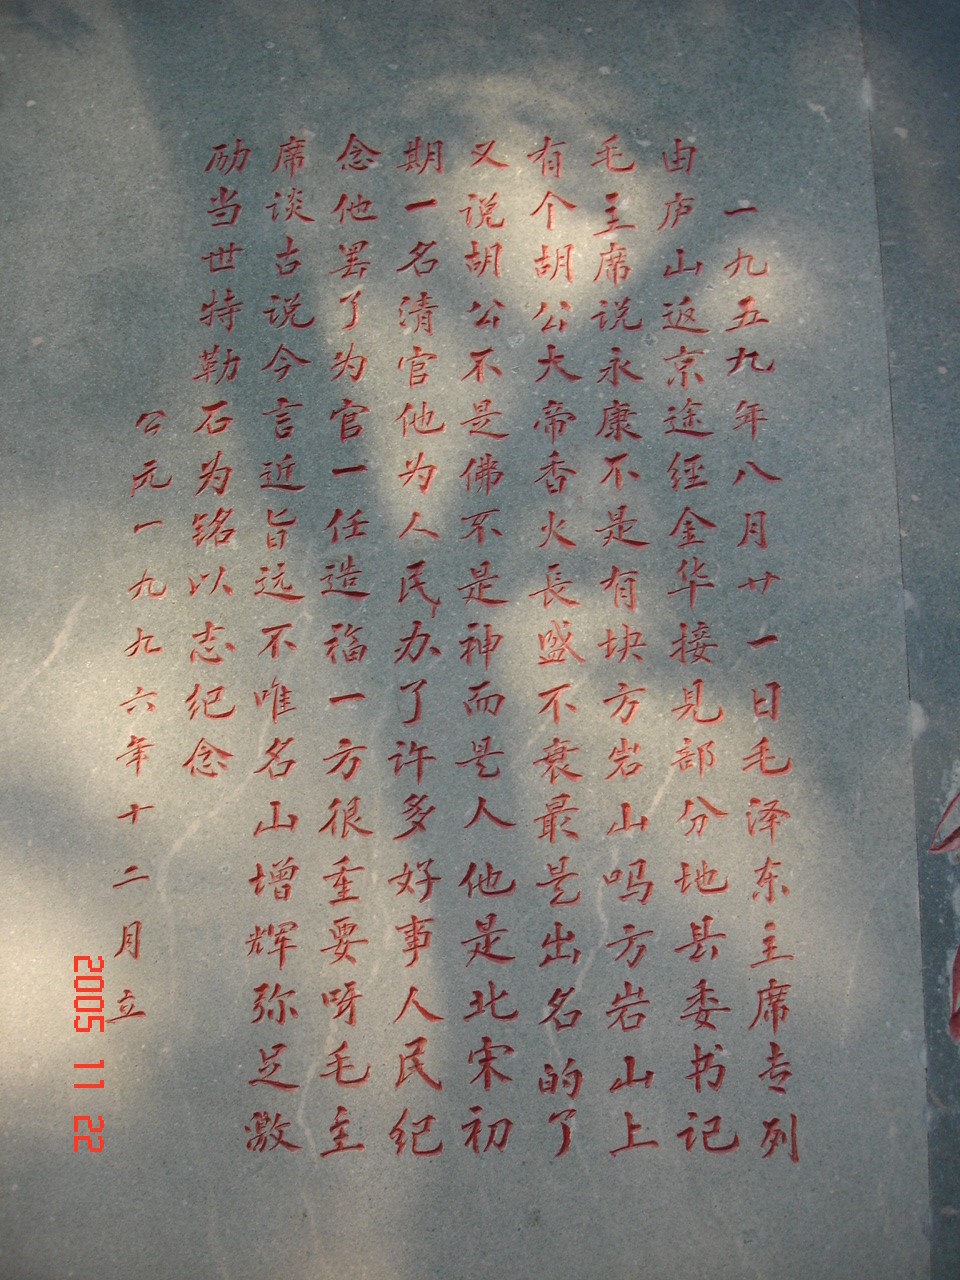 一九五九年八月廿一日毛泽东主席专列
由庐山返京途经金华接见部分地县委书记
毛主席说永康不是有块方岩山吗方岩山上
有个胡公大帝香火長盛不衰最是出名的了
又说胡公不是佛不是神而是人他是北宋初
期一名清官他为人民办了许多好事人民纪
念他罢了为官一任造福一方很重要呀毛主
席谈古说今言近旨远不唯名山增辉弥足激
励当世特勒石为铭以志纪念
公元一九九六年十二月立
2005 11 22